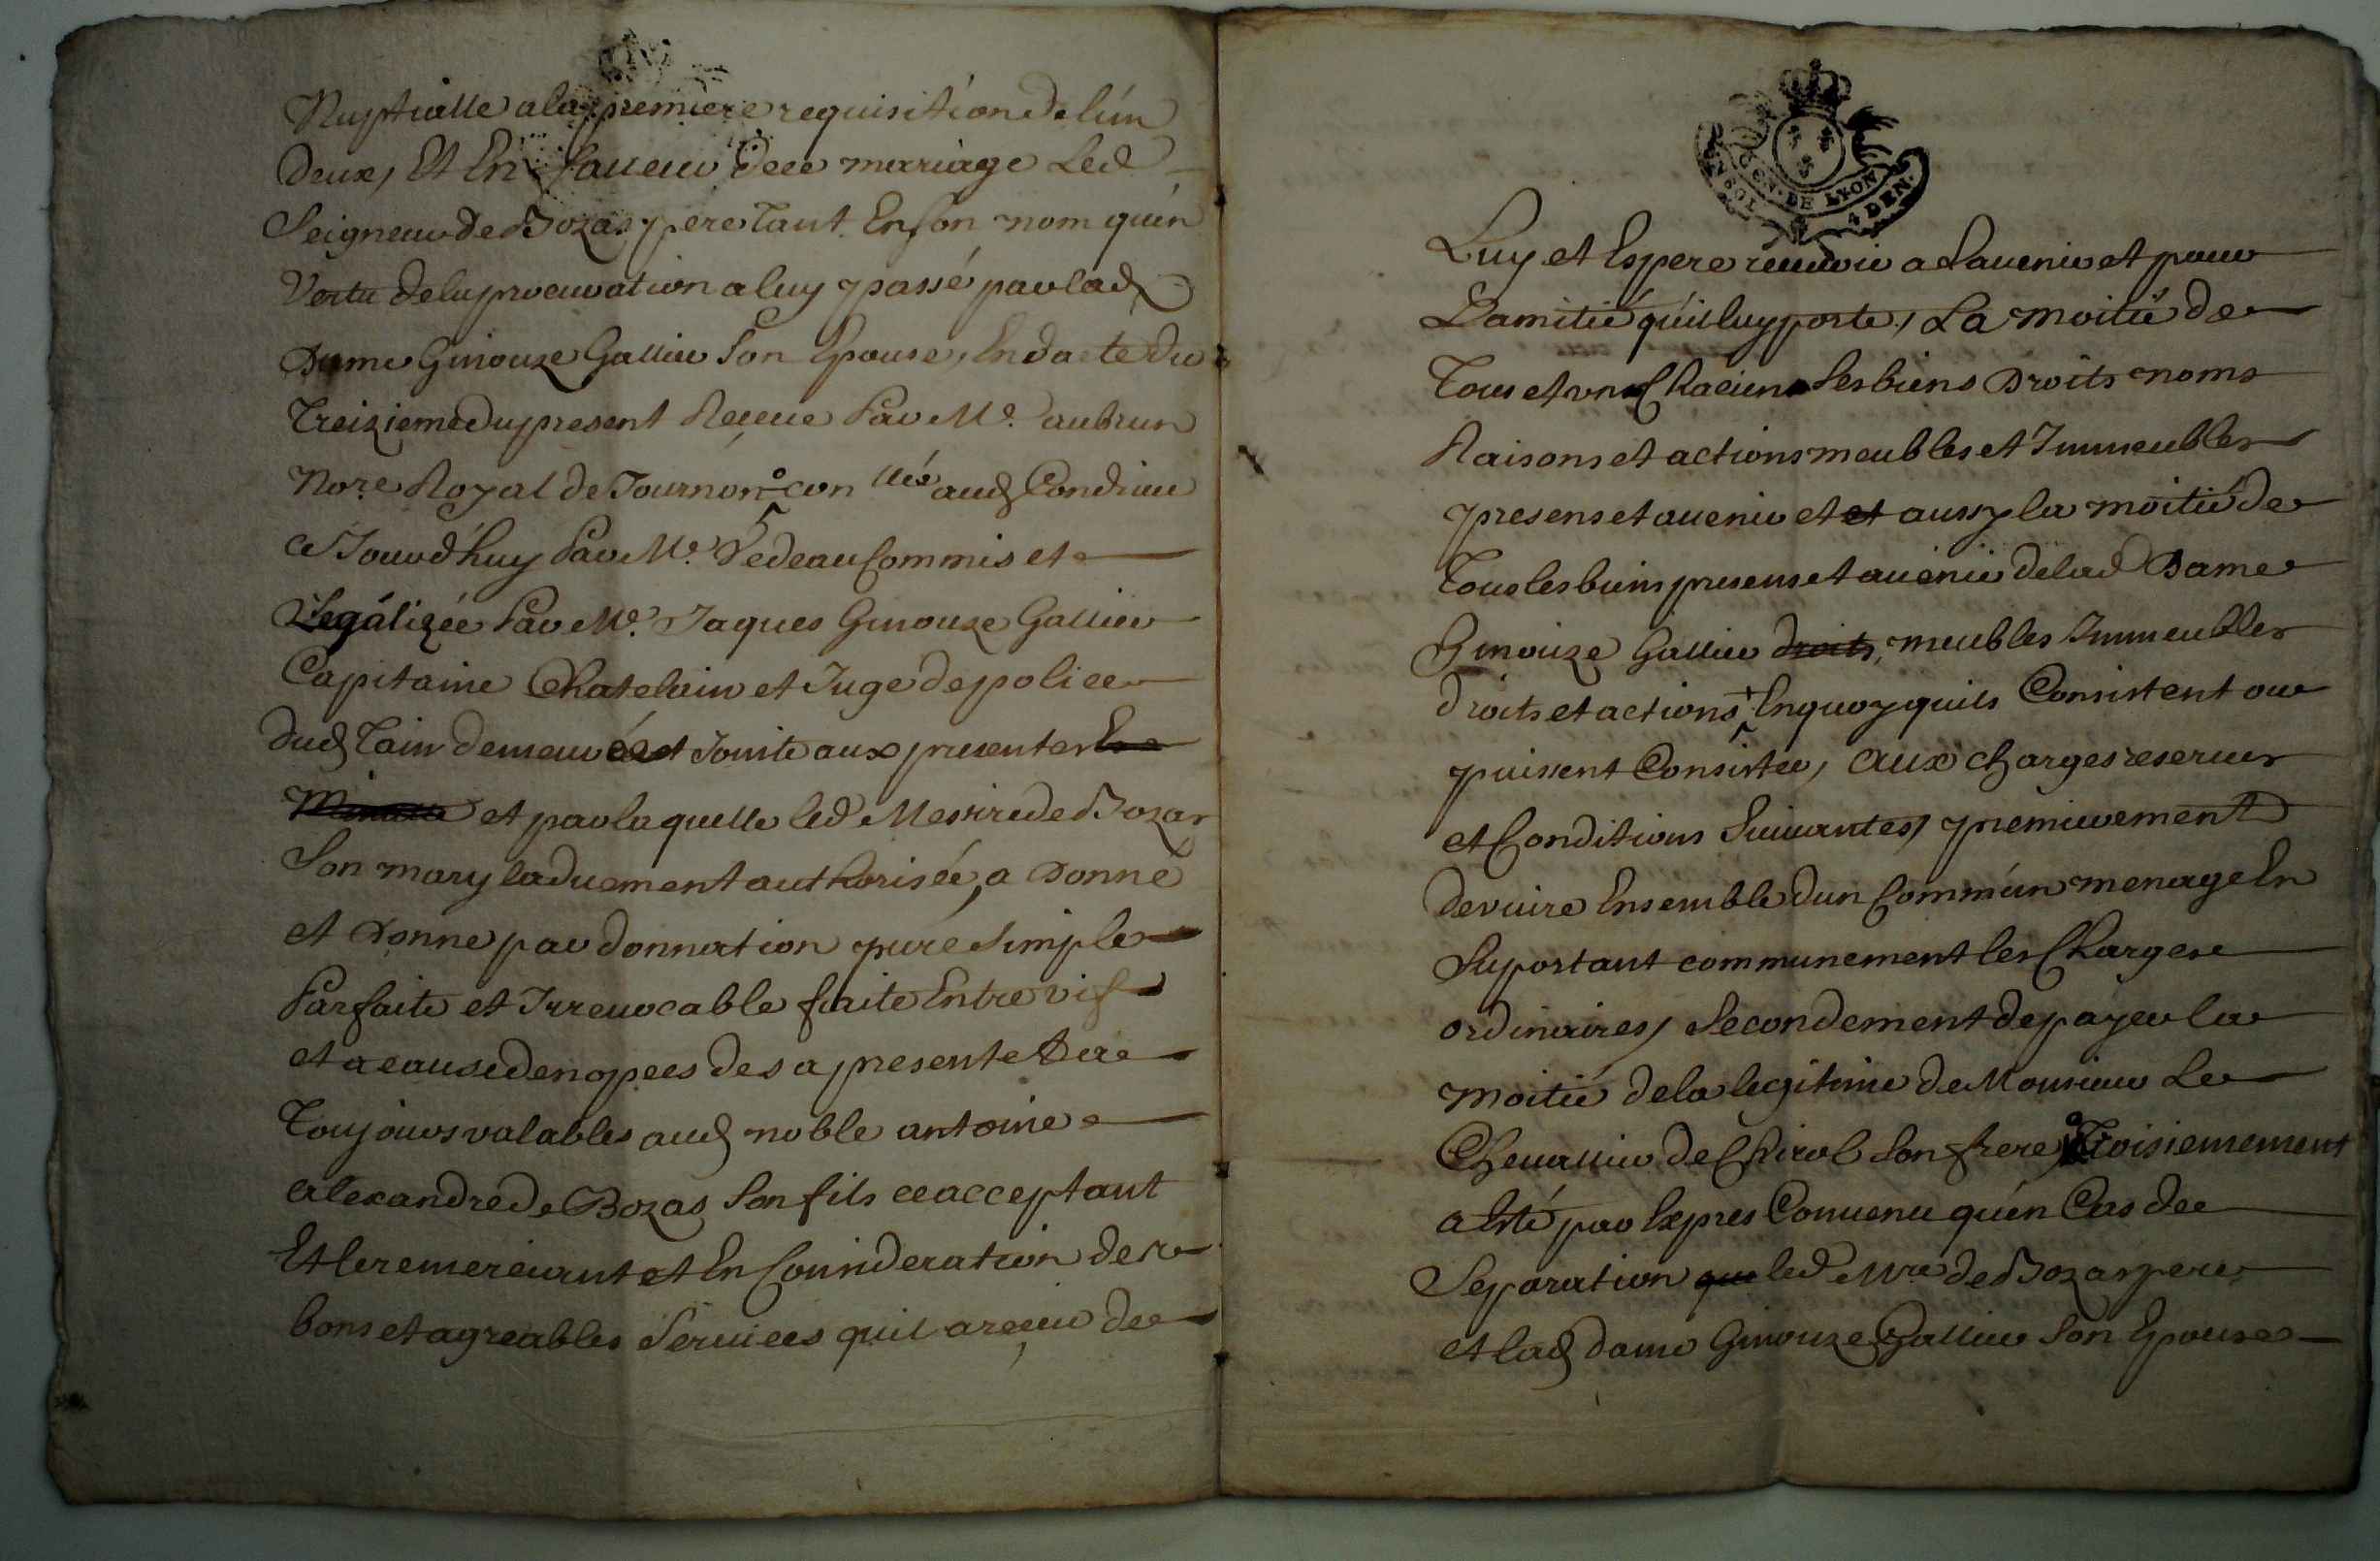 Nuptialle a la premiere requisition de lun
deux, Et En faueur dece mariage Led
Seigneur de Bozas pere tant En son nom quen
Vertu dela procuration a luy passé par lad
Dame Ginouze Gallier Son Epouse, En dacte du
Treizieme du present Reçeue Par Me. aubrun
Nore. Royal de Tournon con llée aud Condrieu
ce Jourdhuy Par Me. Vedeau Commis et
Legálizée Par Me. Jaques Ginouze Gallier
Capitaine Chatelain et Juge de police
dud Tain demeurée et Jointe aux presentes
et par laquelle led Messire de Bozas
Son mary laduement authorisée, a Donné
et Donne par donnation pure simple
Parfaite et Irreuocable faite Entre vif
et a cause de nopces des a presente Et a
Toujours valables aud noble antoine
alexandre de Bozas Son fils ce acceptant
Et le remerciant et En Consideration des
bons et agreables Seruices quil a reçeu de
GEN. DE LYON
4 DEN.
Luy et Espere receuoir a Lauenir et pour
Lamitié quil luy porte, La moitié de
Tous et vns Chacuns Ses biens Droits noms
Raisons et actions meubles et Immeubles
presens et auenir et et aussy la moitié de
Tous les biens presens et auenir delad Dame
Ginouze Gallier droits, meubles Immeubles
droits et actions + En quoy quils Consistent ou
puissent Consister, aux charges reserues
et Conditions Suiuantes, premierement
de viure Ensemble dun Commun menage En
Suportant communement les Charges
ordinaires, Secondement de payer la
moitié de la legitime de Monsieur Le
Cheuallier de Chirol Son frere, Troisiemement
a Eté par Expres Conuenu quén Cas de
Separation que led Mre. de Bozas pere
et lad dame Ginouze Gallier Son Epouse